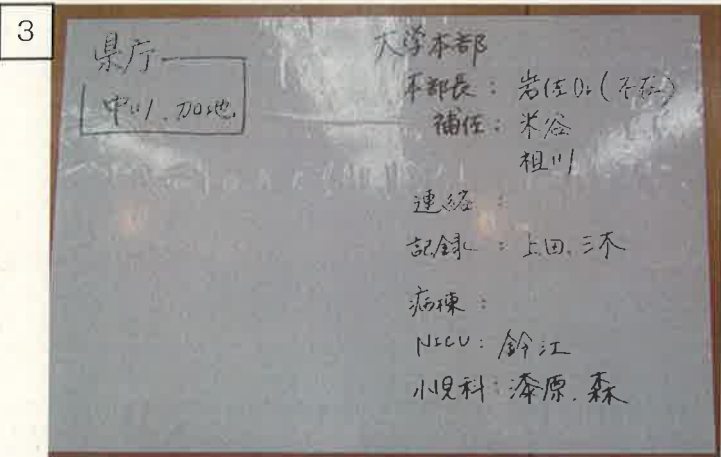 3
県庁
中川、加地
大学本部
本部長：岩佐Dr(不在)
補佐：米谷
相川
連絡：
記録：上田、三木
病棟：
NICU：鈴江
小児科：漆原、森